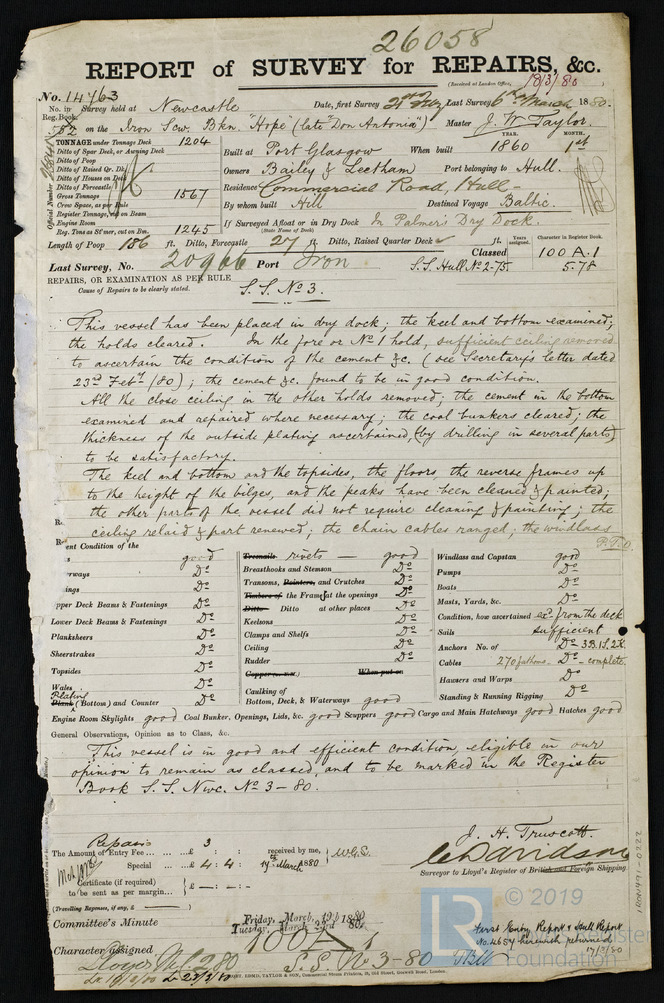 26058
REPORT of SURVEY for REPAIRS, &c.
(Received at London Office, 18/3/80)
No. 14763
No. in Reg. Book. 552
Survey held at Newcastle Date, first Survey 21st Feby Last Survey 6th March 1880.
on the Iron Scw. Bkn. "Hope" (late "Don Antonia") Master J. W. Taylor.
TONNAGE under Tonnage Deck 1204
Ditto of Spar Deck, or Awning Deck
Ditto of Poop
Ditto of Raised Qr. Dk.
Ditto of Houses on Deck
Ditto of Forecastle
Gross Tonnage 1567
Crew Space, as per Rule
Register Tonnage, cut on Beam
Engine Room
Reg. Tons as St'mer, cut on Bm. 1245
Official Number
Built at Port Glasgow When built YEAR. 1860 MONTH. 1st
Owners Bailey & Leetham Port belonging to Hull.
Residence Commercial Road, Hull-
By whom built Hill Destined Voyage Baltic.
If Surveyed Afloat or in Dry Dock In Palmers Dry Dock.
(State Name of Dock)
Length of Poop 186 ft. Ditto, Forecastle 27 ft. Ditto, Raised Quarter Deck ✓ ft. Years assigned. Character in Register Book.
Last Survey, No. 20966 Port Iron Classed 100 A.1
S.S. Hull No 2-75. 5.78
REPAIRS, OR EXAMINATION AS PER RULE
Cause of Repairs to be clearly stated.
S.S. No 3.
This vessel has been placed in dry dock; the keel and bottom examined;
the holds cleared. In the fore or No 1 hold, sufficient ceiling removed
to ascertain the condition of the cement &c. (see Secretary's letter dated
23rd Feby /80); the cement &c. found to be in good condition.
All the close ceiling in the other holds removed; the cement in the bottom
examined and repaired where necessary; the coal bunkers cleared; the
thickness of the outside plating ascertained (by drilling in several parts)
to be satisfactory.
The keel and bottom and the topsides, the floors, the reverse frames up
to the height of the bilges, and the peaks have been cleaned & painted;
the other parts of the vessel did not require cleaning & painting; the
ceiling relaid & part renewed; the chain cables ranged; the windlass
P.T.O
ent Condition of the
good
erways Do
ings Do
pper Deck Beams & Fastenings Do
Lower Deck Beams & Fastenings Do
Planksheers Do
Sheerstrakes Do
Topsides Do
Wales Do
Plating
Plank (Bottom) and Counter Do
Treenails rivets — good
Breasthooks and Stemson Do
Transoms, Pointers, and Crutches Do
Timbers of the Frames at the openings Do
Ditto Ditto at other places Do
Keelsons Do
Clamps and Shelfs Do
Ceiling Do
Rudder Do
Copper When put on
Caulking of
Bottom, Deck, & Waterways good
Windlass and Capstan good
Pumps Do
Boats Do
Masts, Yards, &c. Do
Condition, how ascertained exd from the deck
Sails sufficient
Anchors No. of Do 3B. 1S. 2K.
Cables 270 fathoms. Do - complete
Hawsers and Warps Do
Standing & Running Rigging Do
Engine Room Skylights good Coal Bunker, Openings, Lids, &c. good Scuppers good Cargo and Main Hatchways good Hatches good
General Observations, Opinion as to Class, &c.
This vessel is in good and efficient condition, eligible in our
opinion to remain as classed, and to be marked in the Register
Book S.S. Nwc. No 3-80.
Repairs
The Amount of Entry Fee ... £ 3 : : received by me,
Special ... £ 4 : 4 : 17th March 1880 W.G.E.
Certificate (if required) to be sent as per margin ... £ — : — .
(Travelling Expenses, if any, £ )
J. H. Truscott.
C. Davidson
Surveyor to Lloyd's Register of British and Foreign Shipping.
Committee's Minute Friday, March, 19th 1880
Tuesday, March 23rd 1880.
Character assigned 100 A 1
S.S. No 3-80
First Entry Report & Hull Report
No. 4657 herewith returned
17/3/80
IRON491-0222
© 2019
LR
Foundation